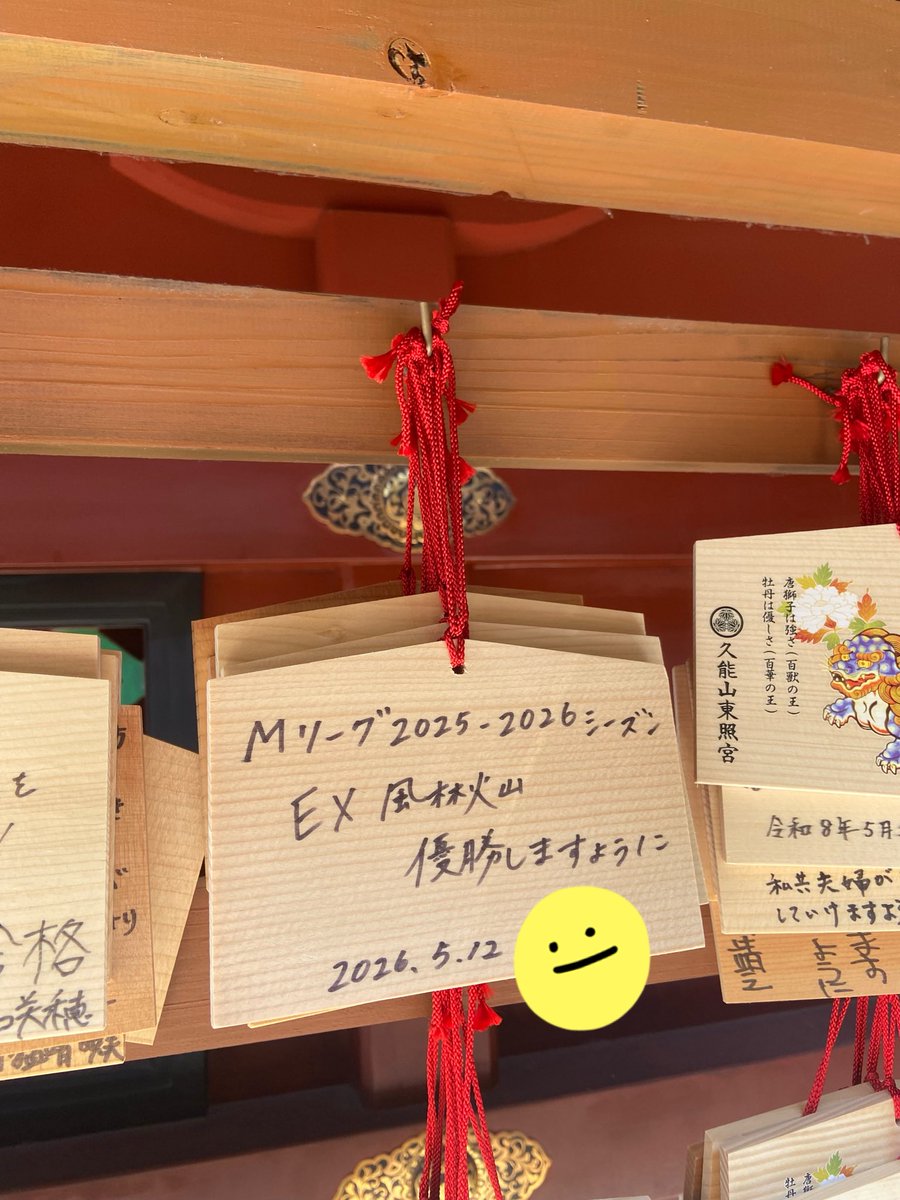 Mリーグ2025-2026シーズン
EX 風林火山
優勝しますように
2026.5.12
唐獅子は強さ(百獣の王)
牡丹は優しさ(百華の王)
久能山東照宮
令和8年5月
私共夫婦が
していけますよ
を
合格
咲穂